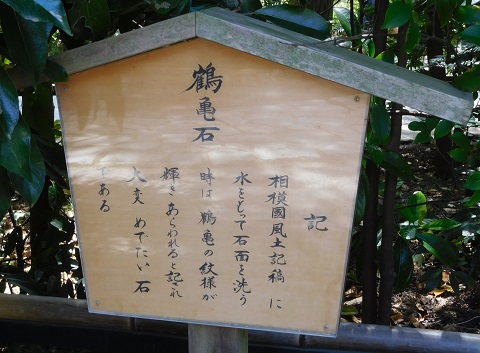 鶴亀石
記
相模國風土記稿 に
水をもって石面を洗う
時は 鶴亀の紋様が
輝きあらわれると記され
大変 めでたい 石
である